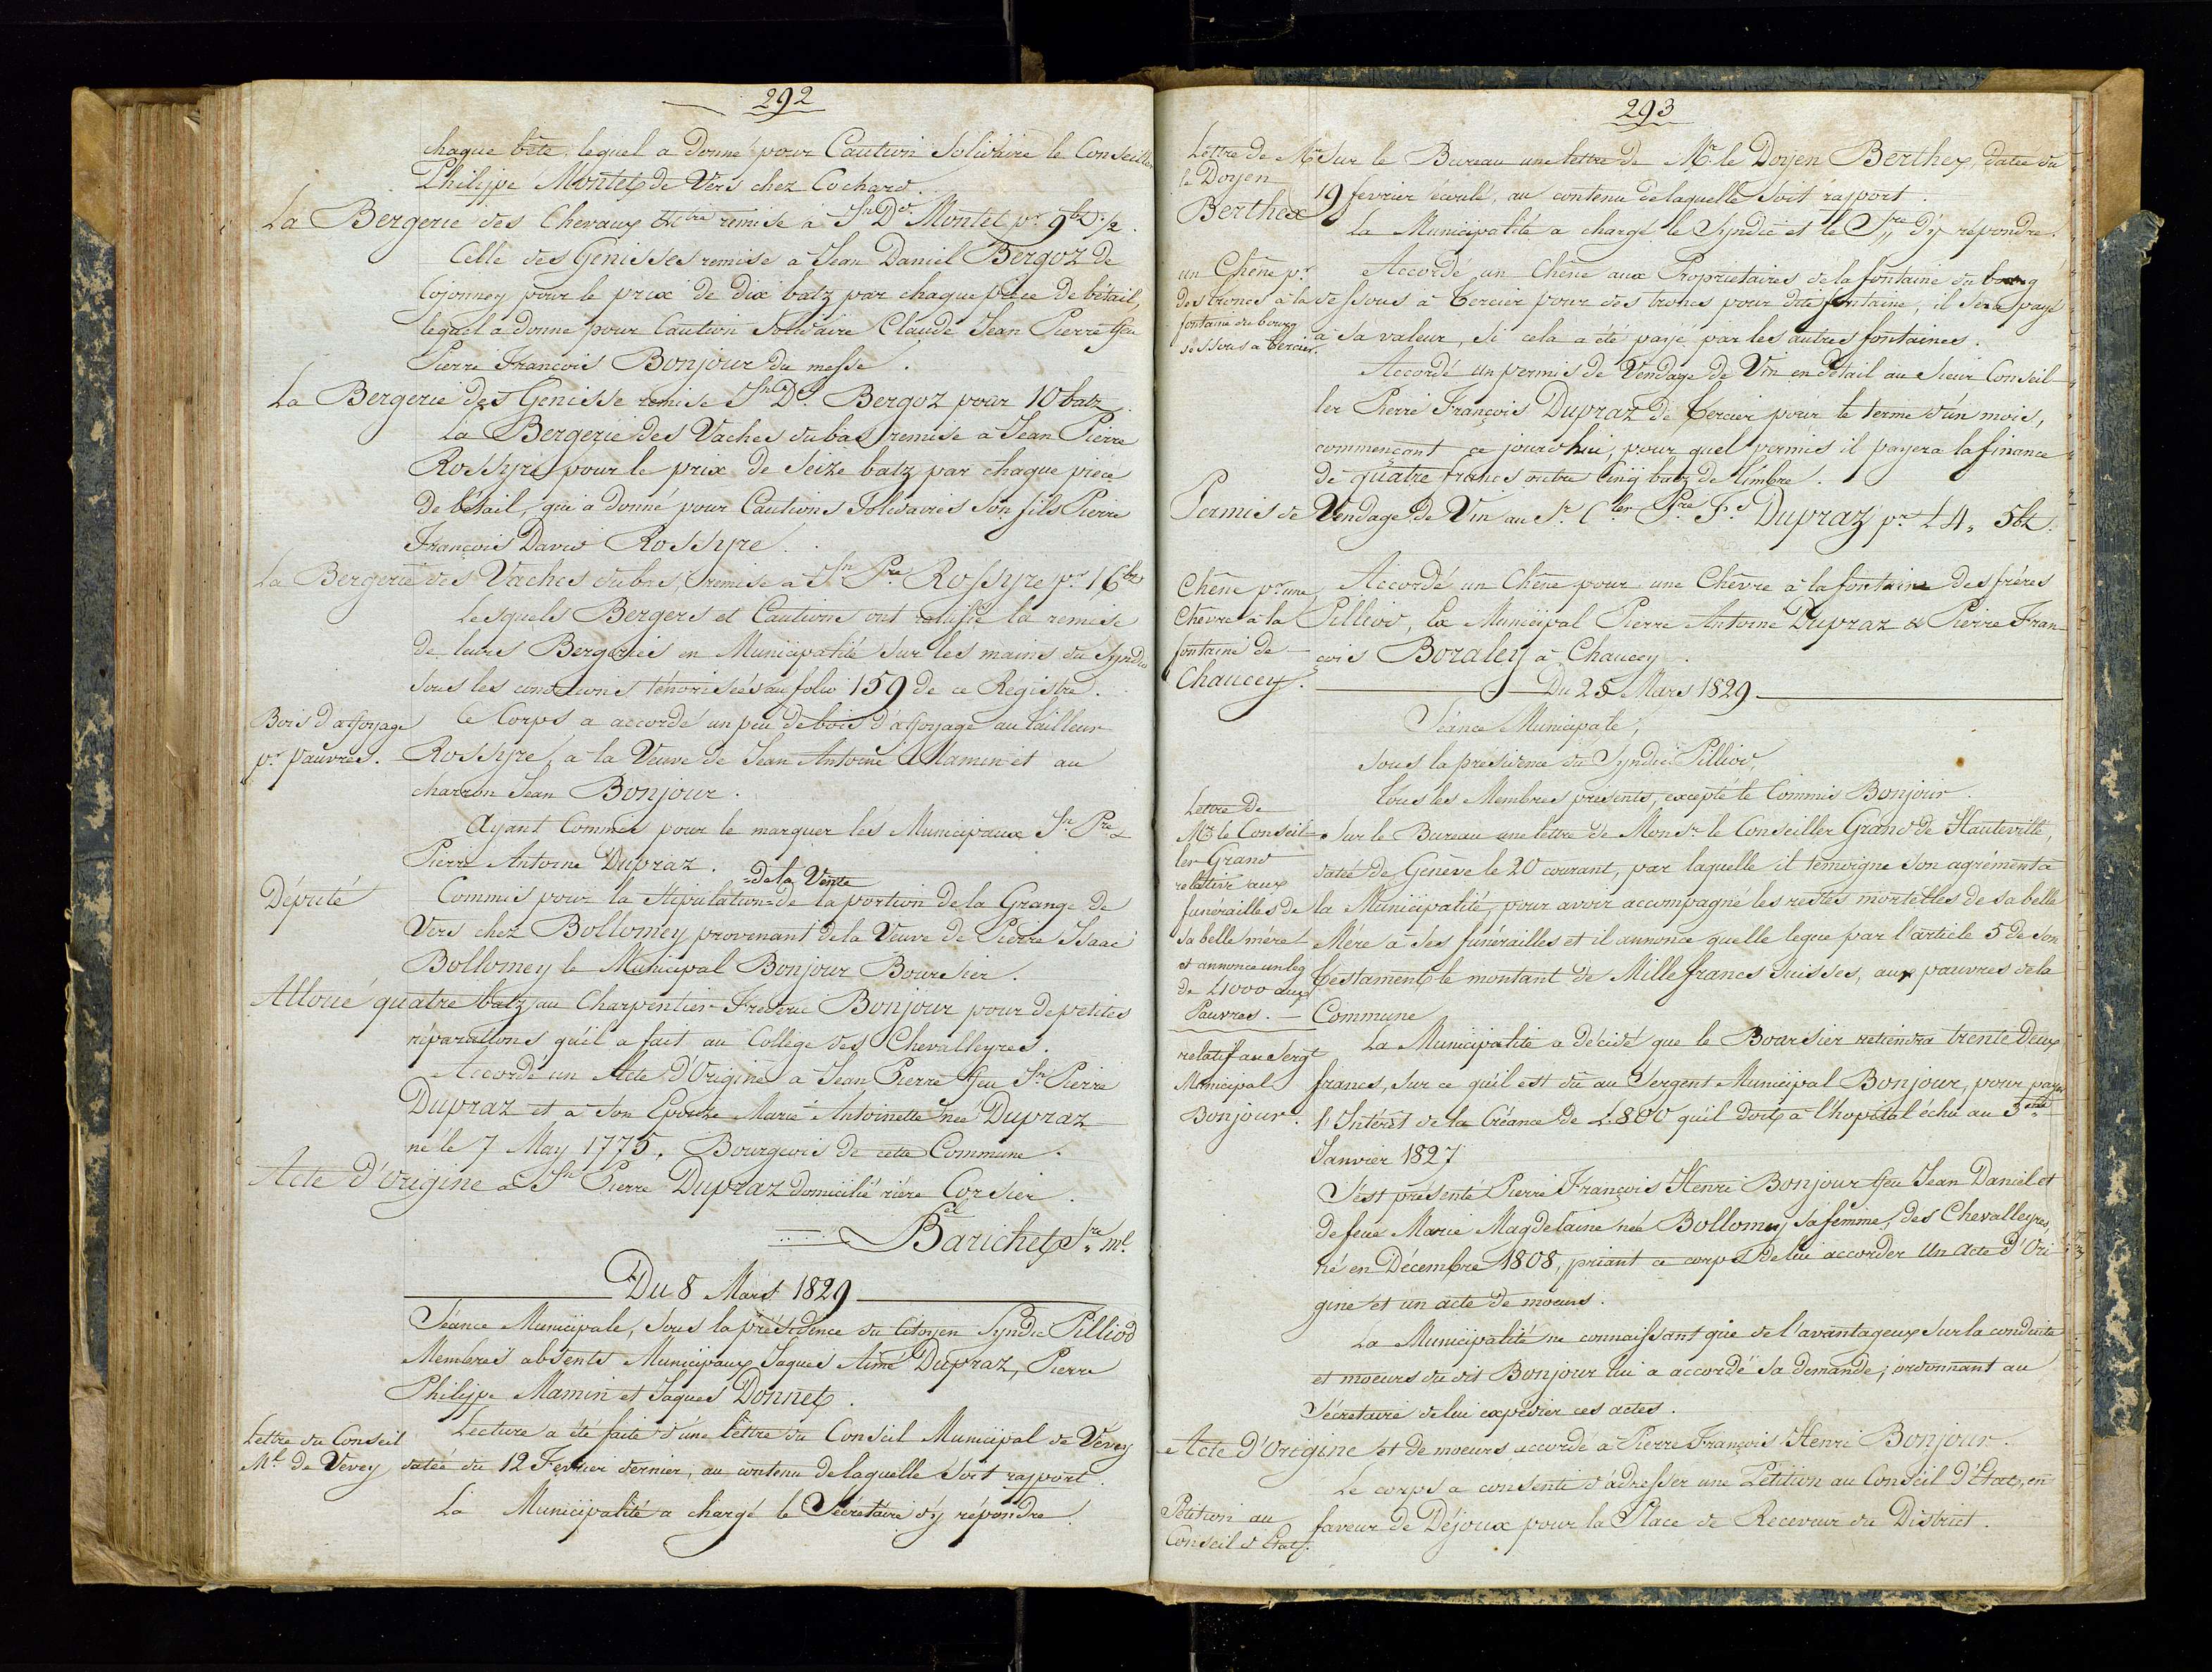 292
chaque bête, lequel a donné pour Caution Solidaire le Conseiller
Philippe Montet de Vers chez Cochard.
La Bergerie des Chevaux &ctra remise à Jn Dd Montet pr 9 btz ½.
Celle des Génisses remise à Jean Daniel Bergoz de
Cojonney pour le prix de dix batz par chaque pièce de bétail,
lequel a donné pour Caution Solidaire Claude Jean Pierre ffeu
Pierre François Bonjour du messe.
La Bergerie des Genisse remise Jn Dl Bergoz pour 10 batz.
La Bergerie des Vaches du bas remise à Jean Pierre
Rossyre pour le prix de Seize batz par chaque pièce
de bétail, qui a donné pour Cautions Solidaires son fils Pierre
François David Rossyre.
La Bergerie des Vaches du bas remise à Jn Pre Rossyre pr 16 btz
Lesquels Bergers et Cautions ont ratifié la remise
de leurs Bergeries en Municipalité Sur les mains du Syndic
sous les conditions ténorisées au folio 159 de ce Régistre.
Bois d'affoyage
pr pauvres.
Ce Corps a accordé un peu de bois d'affoyage au tailleur
Rossyre, à la Veuve de Jean Antoine Mamin et au
charron Jean Bonjour.
Ayant Commis pour le marquer les Municipaux Jn Pre &
Pierre Antoine Dupraz.
=de la Vente
Député
Commis pour la Stipulation= de la portion de la Grange de
Vers chez Bollomey provenant de la Veuve de Pierre Isaac
Bollomey le Municipal Bonjour Boursier.
Alloué quatre batz au Charpentier Frederic Bonjour pour de petites
réparations qu'il a fait au Collège des Chevalleyres.
Accordé un Acte d'Origine à Jean Pierre ffeu Jn Pierre
Dupraz et à Son Epouze Marie Antoinette née Dupraz
né le 7 May 1775. Bourgeois de cette Commune.
Acte d'Origine à Jn Pierre Dupraz domicilié rière Corsier.
Bel Barichet Sre ml.
Du 8 Mars 1829
Séance Municipale, Sous la présidence du Citoyen Syndic Pilliod
Membres absents Municipaux Jaques Aimé Dupraz, Pierre
Philippe Mamin et Jaques Donnet.
Lettre du Conseil
Ml de Vevey
Lecture a été faite d'une lettre du Conseil Municipal de Vevey
datée du 12 Fevrier dernier, au contenu de laquelle Soit rapport.
La Municipalité a chargé le Sécrétaire d'y répondre.
293
Lettre de Mr
le Doyen
Berthex
Sur le Bureau une lettre de Mr. le Doyen Berthex, datée du
19 fevrier écoulé, au contenu de laquelle Soit rapport.
La Municipalité a chargé le Syndic et le Sre d'y répondre.
un Chêne pr
des troncs à la
fontaine du bourg
dessous à Cercier.
Accordé un Chêne aux Proprietaires de la fontaine du bourg
dessous à Cercier pour des troncs pour dite fontaine, il sera payé
à sa valeur, si cela a été payé par les autres fontaines.
Accordé un permis de Vendage de Vin en détail au Sieur Conseil-
ler Pierre François Dupraz de Cercier pour le terme d'un mois,
commençant ce jourd'hui, pour quel permis il payera la finance
de quatre francs outre Cinq batz de timbre.
Permis de Vendage de Vin au Sr Cler Pre Fs Dupraz pr L4, 5 btz.
Chêne pr une
Chèvre à la
fontaine de
Chaucey.
Accordé un Chêne pour une Chèvre à la fontaine des frères
Pilliod, La Municipal Pierre Antoine Dupraz & Pierre Fran-
çois Boraley à Chaucey.
Du 25 Mars 1829
Séance Municipale,
sous la présidence du Syndic Pilliod,
tous les Membres présents, excepté le Commis Bonjour.
Lettre de
Mr le Conseil-
ler Grand
relative aux
funérailles de
Sa belle mére
et annonce un leg
de L1000 aux
Pauvres.
Sur le Bureau une lettre de Monsr le Conseiller Grand de Hauteville,
datée de Genève le 20 courant, par laquelle il témoigne Son agrément à
la Municipalité, pour avoir accompagné les restes mortelles de sa belle
Mére à Ses funérailles et il annonce quelle legue par l'article 5 de Son
testament le montant de Mille francs Suisses, aux pauvres de la
Commune
relatif au Sergt
Municipal
Bonjour.
La Municipalité a décidé que le Boursier retiendra trente deux
francs, Sur ce qu'il est dû au Sergent Municipal Bonjour, pour payer
l'Intérêt de la Créance de L.800 qu'il doit à l'hopital échu au 3eme
Janvier 1827
S'est présenté Pierre François Henri Bonjour ffeu Jean Daniel et
de feue Marie Magdelaine née Bollomey sa femme, des Chevalleyres,
né en Décembre 1808, priant ce corps de lui accorder Un Acte d'Ori-
gine et un acte de moeurs.
La Municipalité ne connaissant que de l'avantageux sur la conduite
et moeurs du dit Bonjour lui a accordé sa demande; ordonnant au
Sécrétaire de lui expédier ces actes.
Acte d'Origine et de moeurs accordé à Pierre François Henri Bonjour.
Pétition au
Conseil d'Etat.
Le corps a consenti d'adresser une Pétition au Conseil d'Etat, en
faveur de Déjoux pour la Place de Receveur du District.